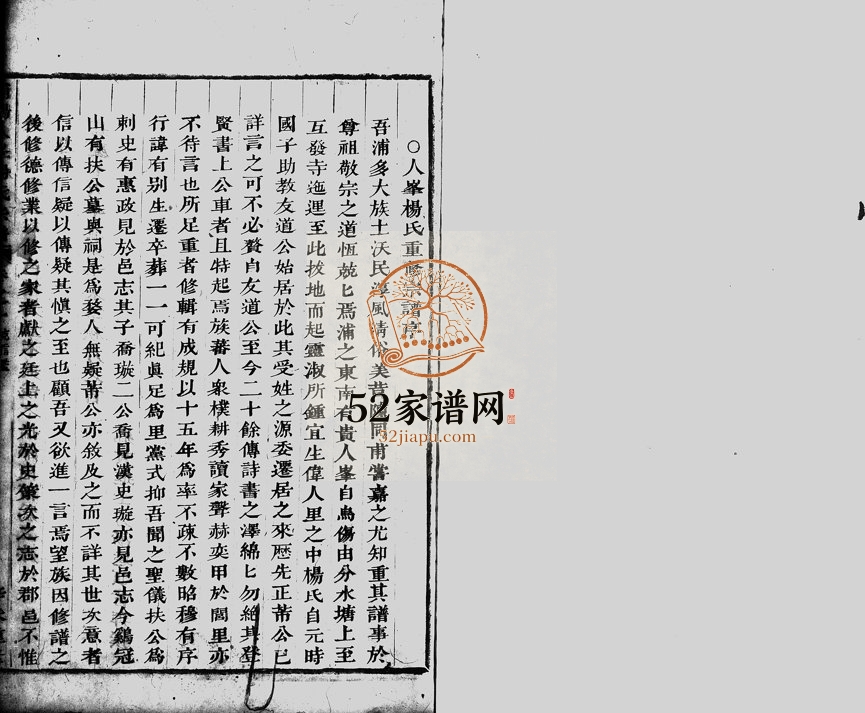 ○人峯楊氏重修宗譜序
吾浦多大族土沃民淳風清俗美昔陳同甫嘗嘉之尤知重其譜事於
尊祖敬宗之道恆兢匕焉浦之東南有貴人峯自烏傷由分水塘上至
互發寺迤邐至此拔地而起靈淑所鍾宜生偉人里之中楊氏自元時
國子助教友道公始居於此其受姓之源委遷居之來歷先正芾公已
詳言之可不必贅自友道公至今二十餘傳詩書之澤綿匕勿絕其登
賢書上公車者且特起焉族蕃人衆樸耕秀讀家聲赫奕甲於閭里亦
不待言也所足重者修輯有成規以十五年為率不疎不數昭穆有序
行諱有别生遷卒葬一一可紀眞足為里黨式抑吾聞之聖儀扶公為
刺史有惠政見於邑志其子喬璇二公喬見漢史璇亦見邑志今鷄冠
山有扶公墓與祠是為婺人無疑芾公亦敘及之而不詳其世次意者
信以傳信疑以傳疑其慎之至也顧吾又欲進一言焉望族因修譜之
後修德修業以修之家者獻之廷上之光於史策次之志於郡邑不惟
52家谱网
52jiapu.com